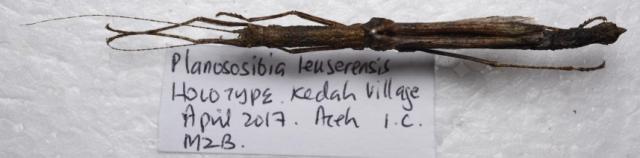 Planososibia leuserensis
HOLOTYPE. Kedah Village
April 2017. Aceh I.C.
MZB.